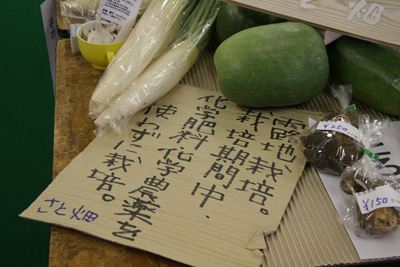 露地栽培。
栽培期間中、
化学肥料化学農薬を
使わずに栽培。
さと畑
畑
¥250
¥150